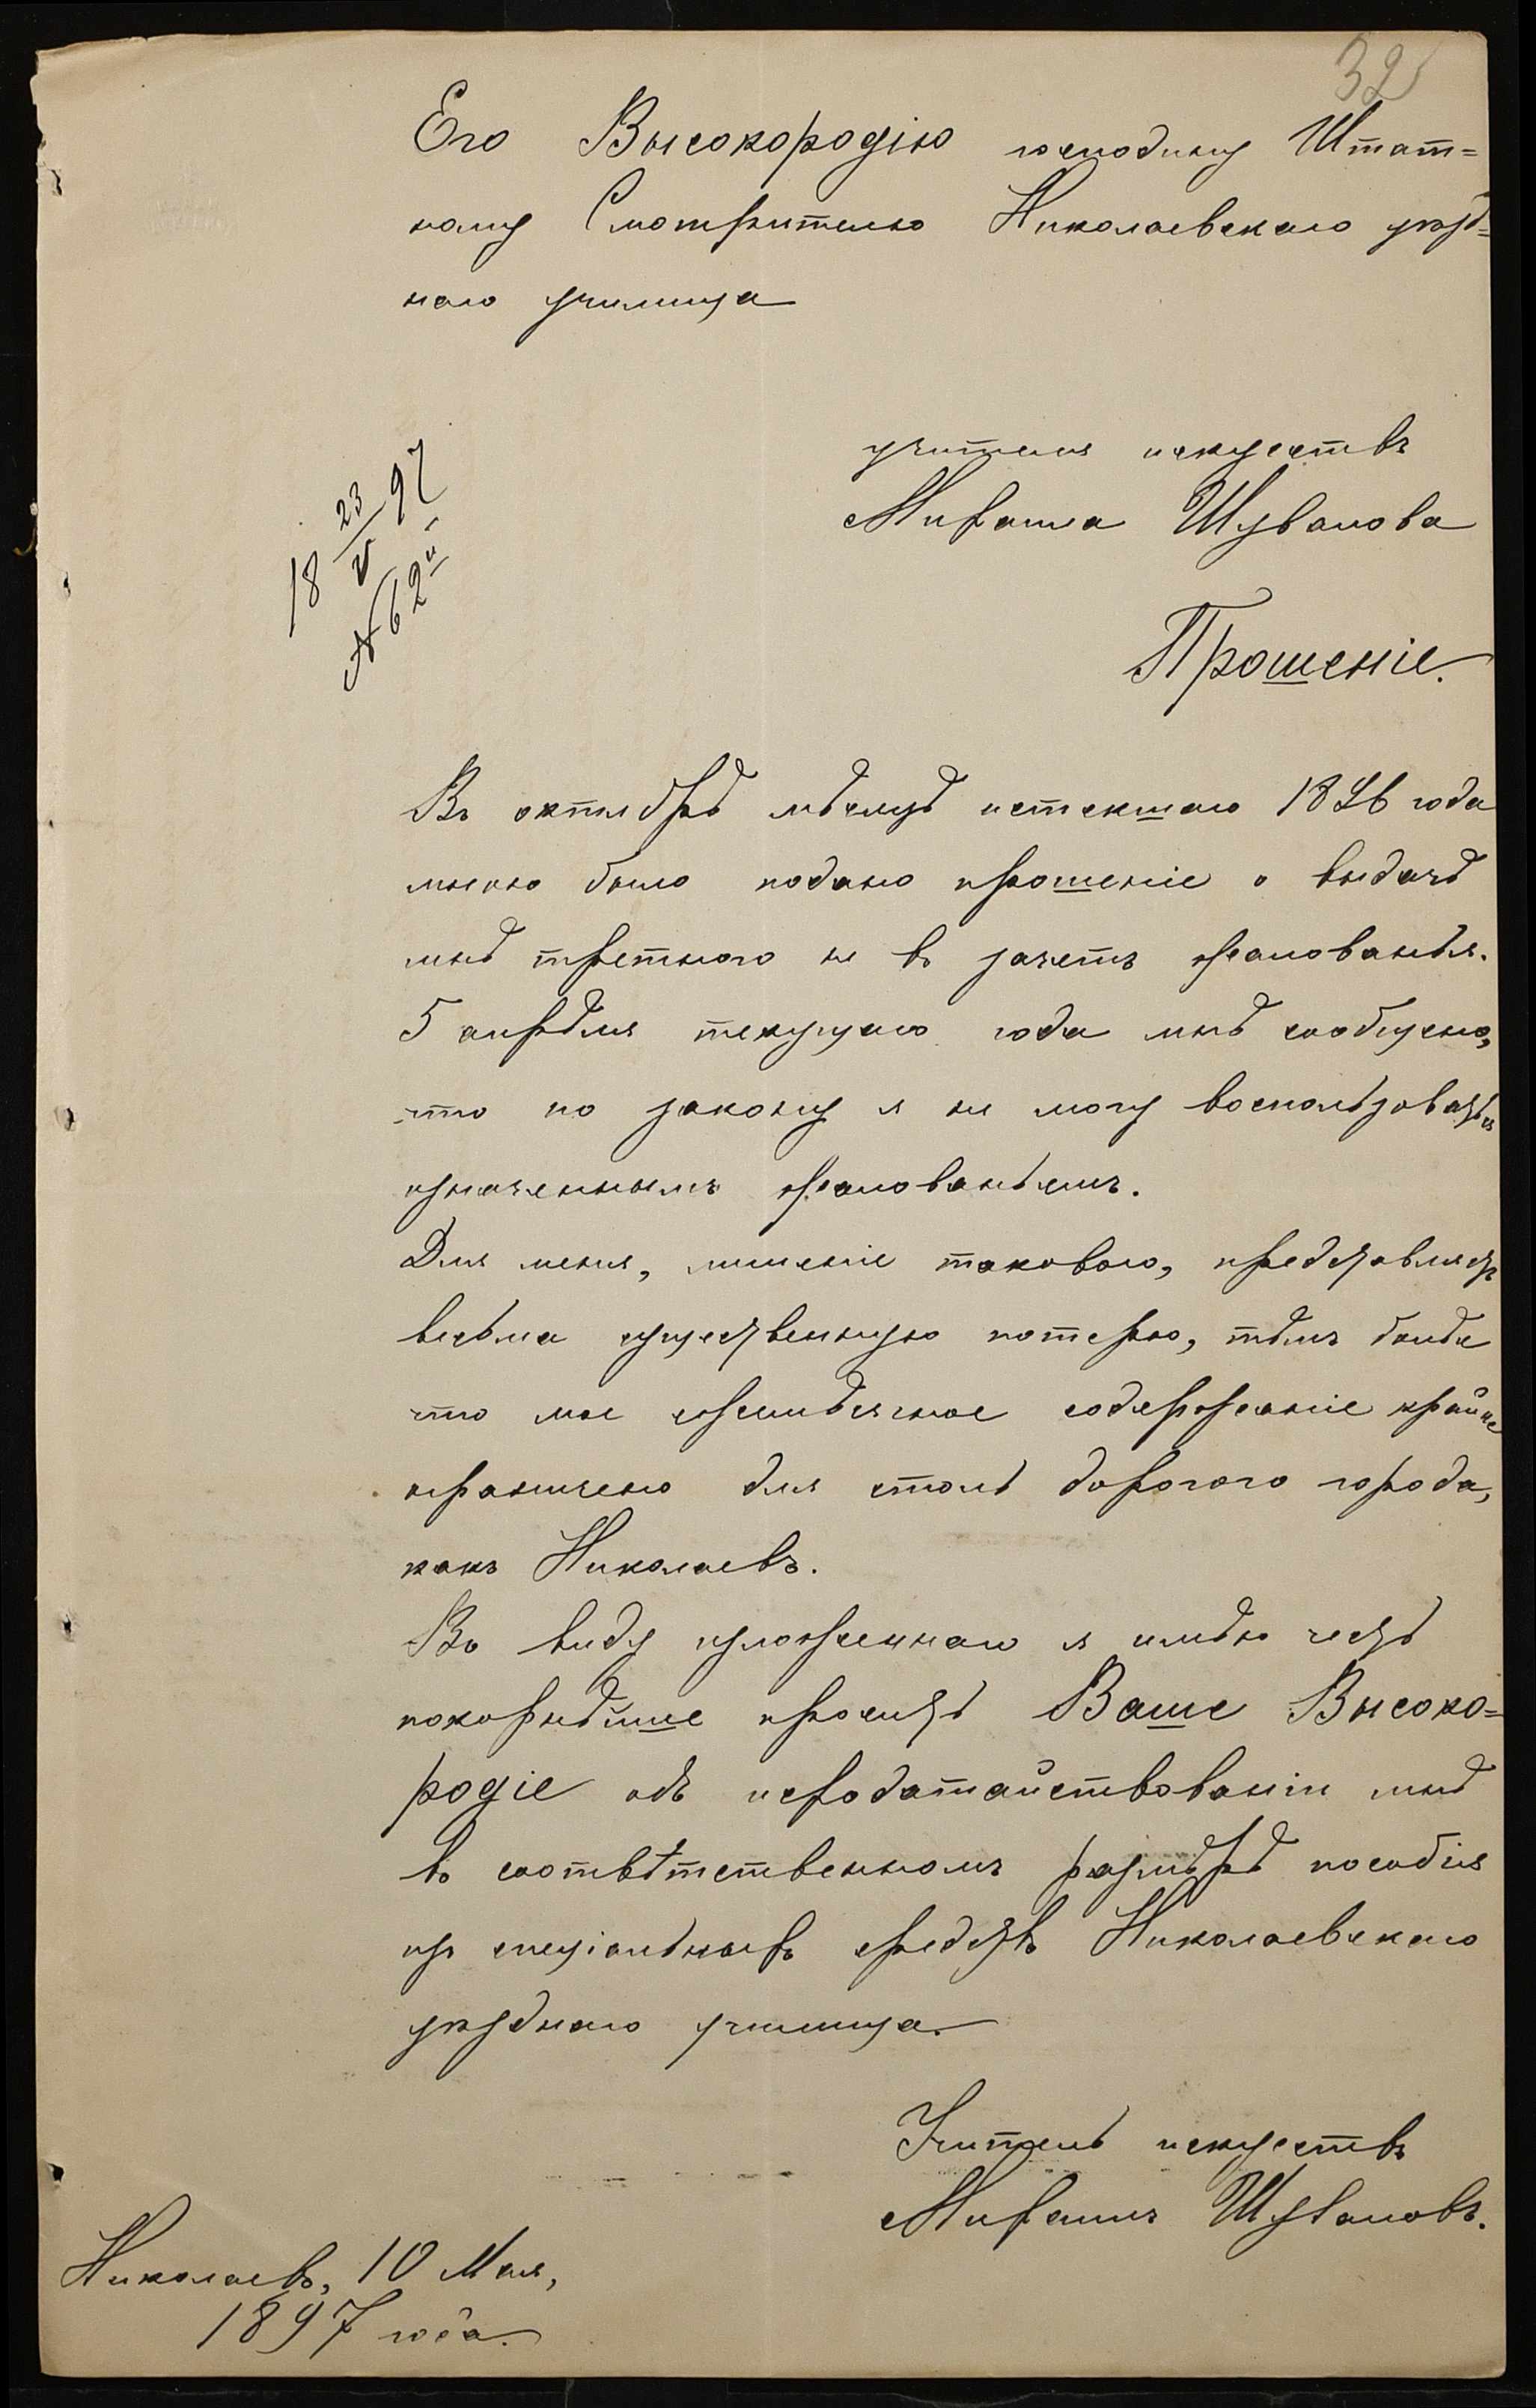 32
Его Высокородію господину Штат=
ному Смотрителю Николаевскаго уѣзд=
наго училища
учителя искуствъ
Михаила Шувалова
18 23/V 97
№ 62
Прошеніе.
Въ октябрѣ мѣсяцѣ истекшаго 1896 года
мною было подано прошеніе о выдачѣ
мнѣ третного не въ зачетъ жалованья.
5 апрѣля текущаго года мнѣ сообщено,
что по закону я не могу воспользоваться
означеннымъ жалованьемъ.
Для меня, лишеніе таковаго, представляетъ
весьма существенную потерю, тѣмъ болѣе
что мое ежемѣсячное содержаніе крайне
ограничено для столь дорогого города,
какъ Николаевъ.
Въ виду изложеннаго я имѣю честь
покорнѣйше просить Ваше Высоко=
родіе объ исходатайствованіи мнѣ
въ соотвѣтственномъ размѣрѣ пособія
изъ спеціальныхъ средствъ Николаевскаго
уѣзднаго училища.
Учитель искуствъ
Михаилъ Шуваловъ.
Николаевъ, 10 Мая,
1897 года.